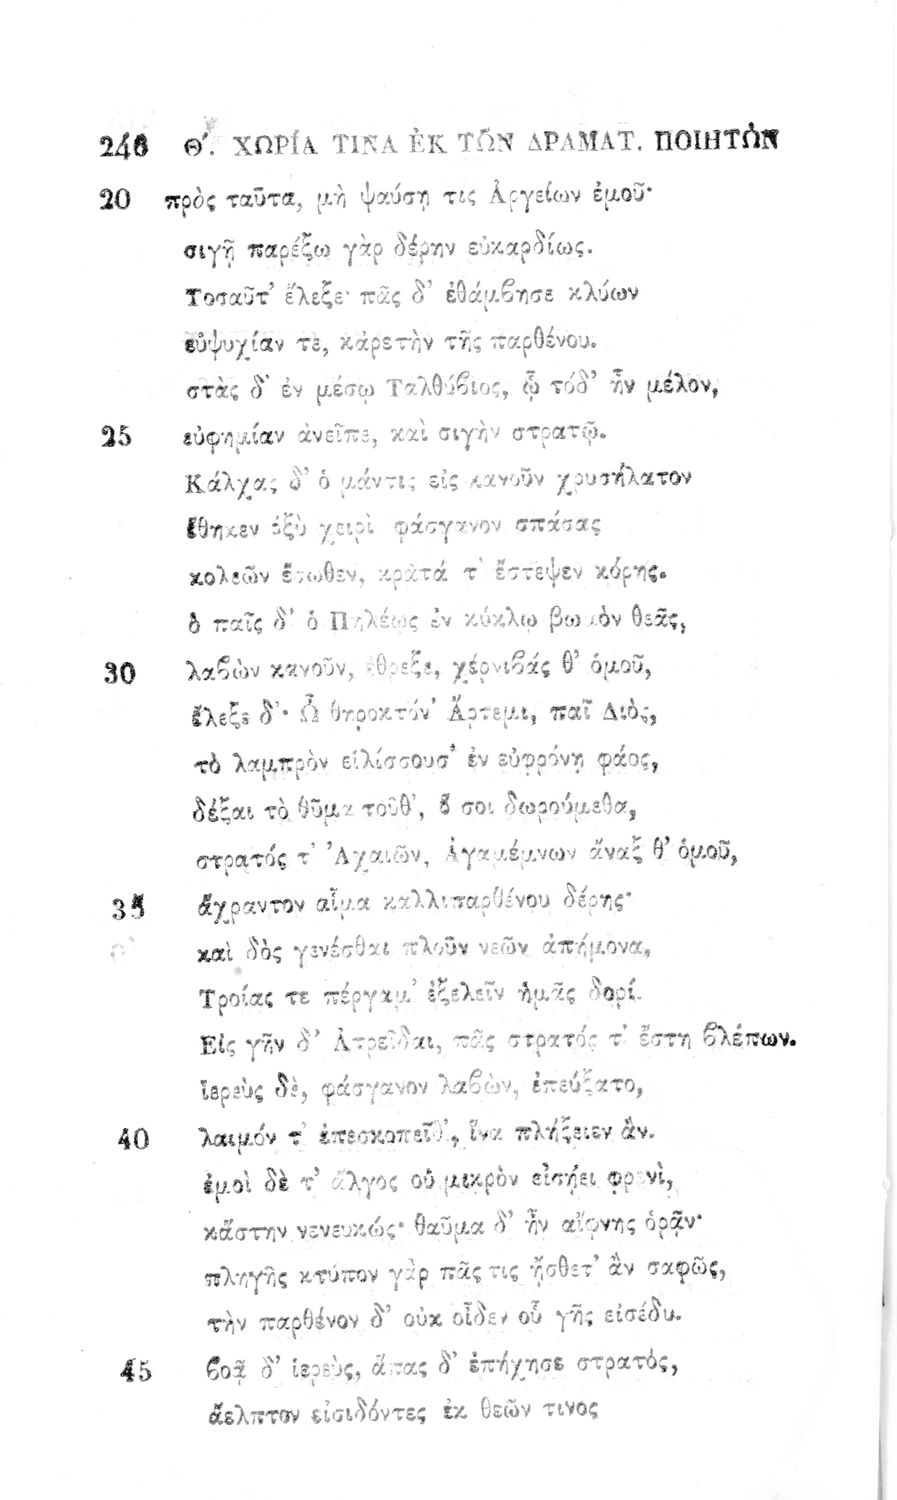 246 Θ΄. ΧΩΡΊΑ ΤΙΝΑ ἘΚ ΤΩ͂Ν ΔΡΑΜΑΤ. ΠΟΙΗΤΩ͂Ν
20 πρὸς ταῦτα, μὴ ψαύσῃ τις Ἀργείων ἐμοῦ·
σιγῇ παρέξω γὰρ δέρην εὐκαρδίως.
Τοσαῦτ' ἔλεξε· πᾶς δ' ἐθάμβησε κλύων
εὐψυχίαν τε, κἀρετὴν τῆς παρθένου.
στὰς δ' ἐν μέσῳ Ταλθύβιος, ᾧ τόδ' ἦν μέλον,
25 εὐφημίαν ἀνεῖπε, καὶ σιγὴν στρατῷ.
Κάλχας δ' ὁ μάντις εἰς κανοῦν χρυσήλατον
ἔθηκεν ὀξὺ χειρὶ φάσγανον σπάσας
κολεῶν ἔσωθεν, κρᾶτά τ' ἔστεψεν κόρης.
ὁ παῖς δ' ὁ Πηλέως ἐν κύκλῳ βωμὸν θεᾶς,
30 λαβὼν κανοῦν, ἔθρεξε, χέρνιβάς θ' ὁμοῦ,
ἔλεξε δ'· Ὦ θηροκτόν' Ἄρτεμι, παῖ Διὸς,
τὸ λαμπρὸν εἱλίσσουσ' ἐν εὐφρόνῃ φάος,
δέξαι τὸ θῦμα τοῦθ', ὅ σοι δωρούμεθα,
στρατός τ' Ἀχαιῶν, Ἀγαμέμνων ἄναξ θ' ὁμοῦ,
35 ἄχραντον αἷμα καλλιπαρθένου δέρης·
καὶ δὸς γενέσθαι πλοῦν νεῶν ἀπήμονα,
Τροίας τε πέργαμ' ἐξελεῖν ἡμᾶς δορί.
Εἰς γῆν δ' Ἀτρεῖδαι, πᾶς στρατός τ' ἔστη βλέπων.
ἱερεὺς δὲ, φάσγανον λαβὼν, ἐπεύξατο,
40 λαιμόν τ' ἐπεσκοπεῖθ', ἵνα πλήξειεν ἄν.
ἐμοὶ δὲ τ' ἄλγος οὐ μικρὸν εἰσῄει φρενὶ,
κἄστην νενευκώς· θαῦμα δ' ἦν αἴφνης ὁρᾷν·
πληγῆς κτύπον γὰρ πᾶς τις ᾔσθετ' ἂν σαφῶς,
τὴν παρθένον δ' οὐκ οἶδεν οὗ γῆς εἰσέδυ.
45 βοᾷ δ' ἱερεὺς, ἅπας δ' ἐπήχησε στρατὸς,
ἄελπτον εἰσιδόντες ἐκ θεῶν τινος